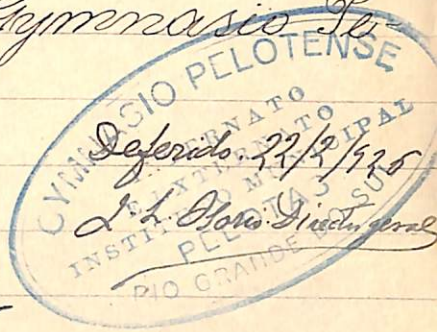 Gymnasio Pe-
GYMNASIO PELOTENSE
INTERNATO
E EXTERNATO
INSTITUTO MUNICIPAL
PELOTAS
RIO GRANDE DO SUL
Deferido. 22/2/926
Director geral